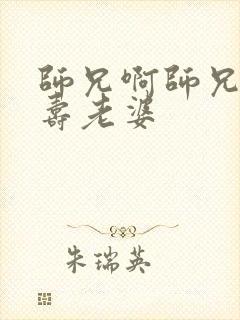 師兄啊師兄
壽老婆
朱瑞英